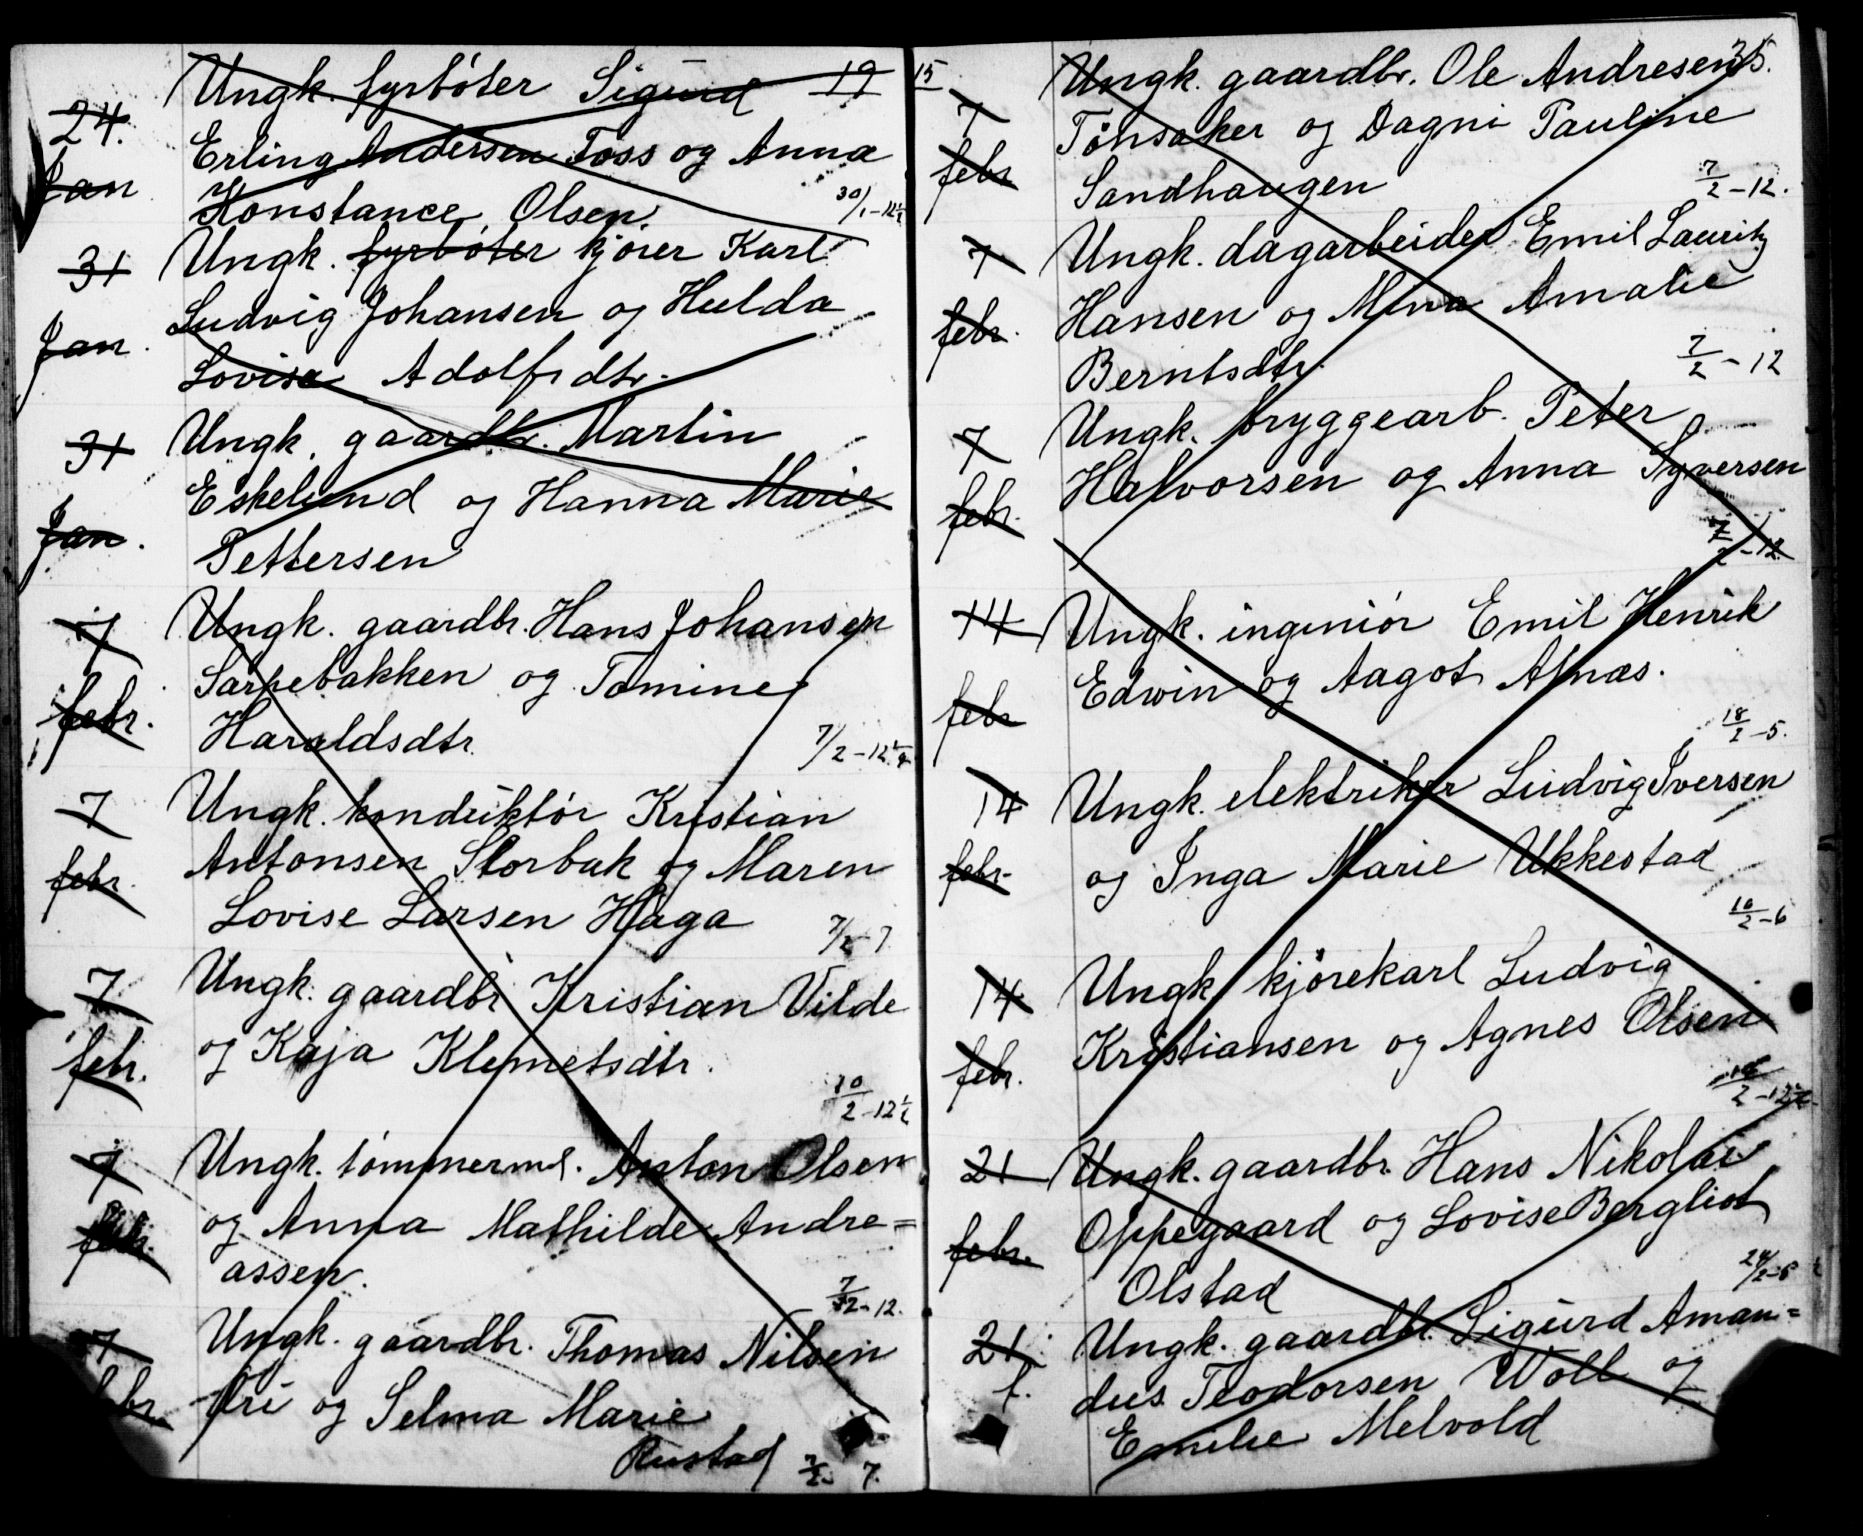 19
24.
Jan
Ungk. fyrbóter Sigurd
Erling Andersen Foss og Anna
Konstance Olsen.
30/1-12½
31
Jan.
Ungk. fyrbóter kjórer Karl
Ludvig Johansen og Hulda
Lovise Adolfsdtr.
31
Jan.
Ungk. gaardbr. Martin
Eskelund og Hanna Marie
Pettersen
7
febr.
Ungk. gaardbr. Hans Johansen
Sarpebakken og Tomine
Haraldsdtr.
7/2-12½
7
febr.
Ungk. konduktór Kristian
Antonsen Storbak og Maren
Lovise Larsen Haga
7/2-7
7
febr.
Ungk. gaardbr Kristian Vilde
og Kaja Klemetsdtr.
10/2-12½
7
febr.
Ungk. tómmerm. Anton Olsen
og Anna Mathilde Andre=
assen.
7/2-12.
7
febr.
Ungk. gaardbr. Thomas Nilsen
og Selma Marie
Rustad 7/2 7.
15
35.
7
febr
Ungk. gaardbr. Ole Andresen
Tónsaker og Dagni Pauline
Sandhaugen
7/2-12.
7
febr.
Ungk. dagarbeider Emil Lauritz
Hansen og Mina Amalie
Berntsdtr.
7/2-12
7
febr.
Ungk. bryggearb. Peter
Halvorsen og Anna Syversen
7/2-12
14
febr
Ungk. ingeniór Emil Henrik
Edwin og Aagot Afnæs.
18/2-5.
14
febr.
Ungk. elektriker Ludvig Iversen
og Inga Marie Ukkestad
16/2-6
14
febr.
Ungk kjórekarl Ludvig
Kristiansen og Agnes Olsen
21
febr.
Ungk. gaardbr. Hans Nikolai
Oppegaard og Lovise Bergliot
Olstad
24/2-6
21.
f.
Ungk. gaardbr. Sigurd Aman=
dus Teodorsen Woll og
Emilie Melvold